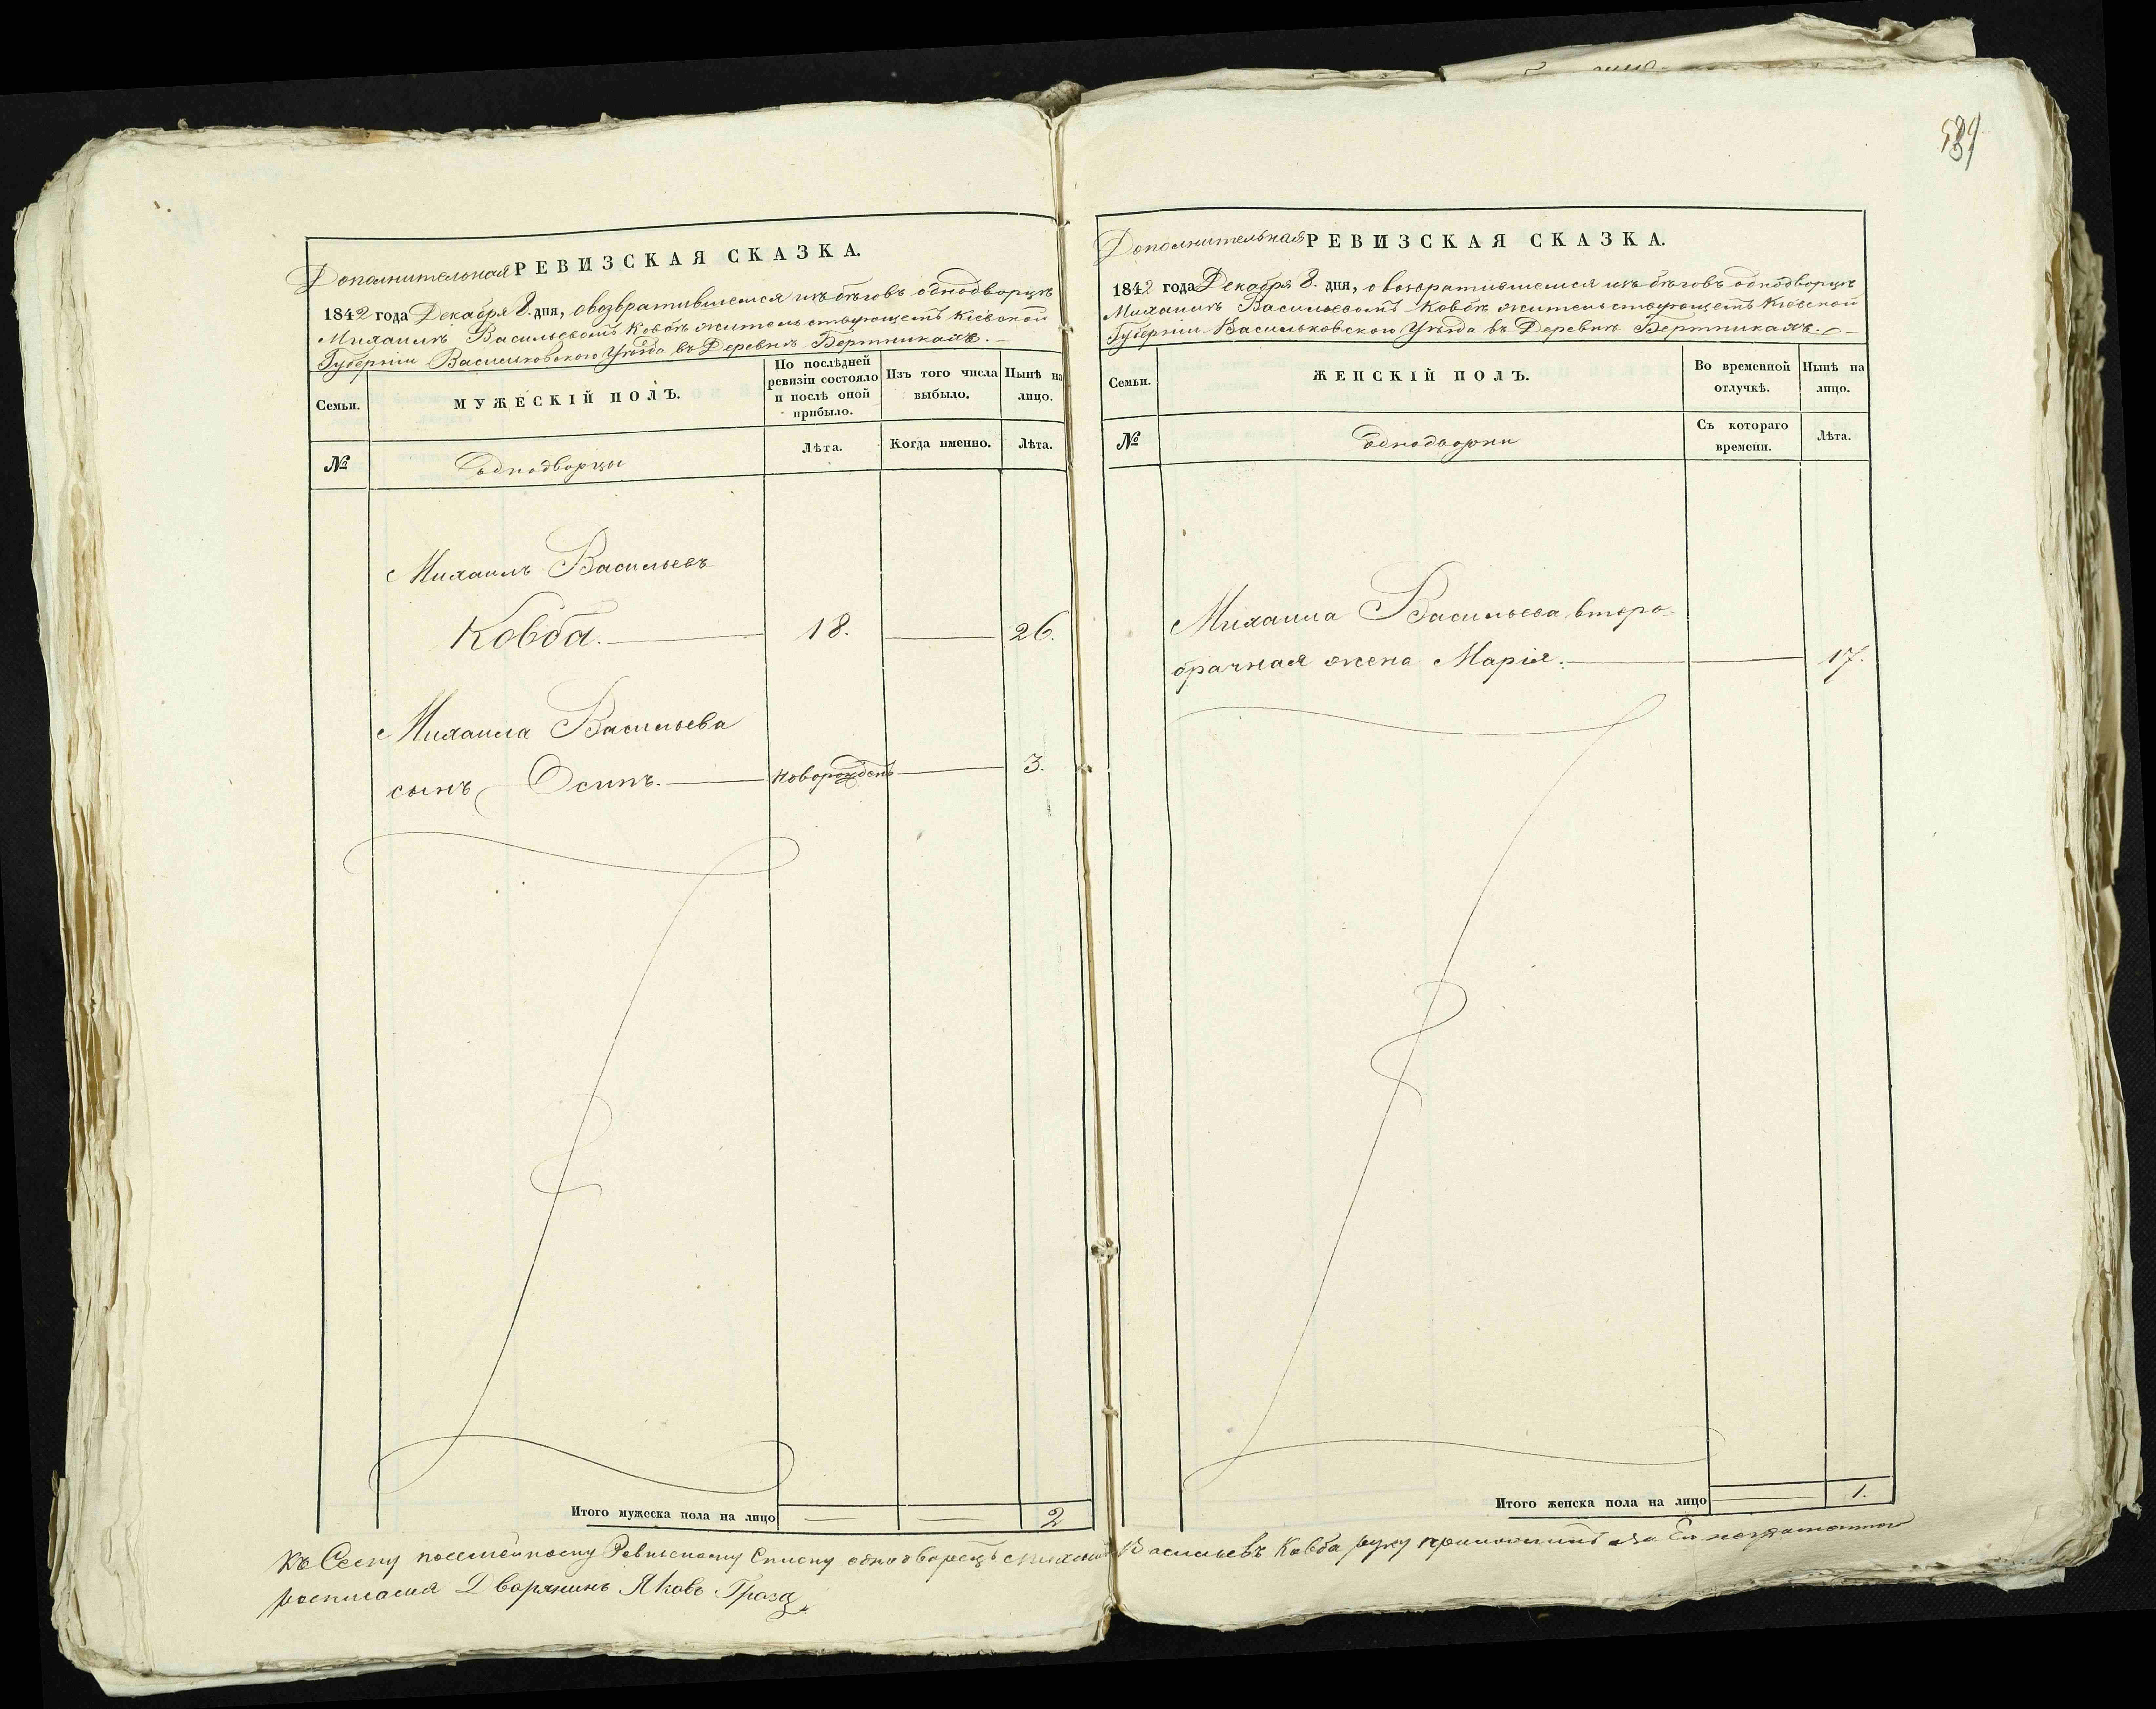 539
Дополнительная РЕВИЗСКАЯ СКАЗКА.
1842 года Декабря 8. дня, о возвратившемся изъ бѣговъ однодворцѣ
Михаилѣ Васильевомъ Ковбѣ жительствующемъ Кіевской
Губерніи Васильковскаго Уѣзда въ Деревнѣ Бертникахъ.
Семьи.
МУЖЕСКІЙ ПОЛЪ.
По послѣдней
ревизіи состояло
и послѣ оной
прибыло.
Изъ того числа
выбыло.
Нынѣ на
лицо.
№
Однодворцы
Лѣта.
Когда именно.
Лѣта.
Михаилъ Васильевъ
Ковба. 18. 26.
Михаила Васильева
сынъ Осипъ. новорожденъ 3.
Итого мужеска пола на лицо 2
Дополнительная РЕВИЗСКАЯ СКАЗКА.
1842 года Декабря 8. дня, о возвратившемся изъ бѣговъ однодворцѣ
Михаилѣ Васильевомъ Ковбѣ жительствующемъ Кіевской
Губерніи Васильковскаго Уѣзда въ Деревнѣ Бертникахъ.
Семьи.
ЖЕНСКІЙ ПОЛЪ.
Во временной
отлучкѣ.
Нынѣ на
лицо.
№
Однодворки
Съ котораго
времени.
Лѣта.
Михаила Васильева второ-
брачная жена Марія. 17.
Итого женска пола на лицо 1.
Къ Сему посемейному Ревизскому Списку однодворецъ Михаилъ Васильевъ Ковба руку приложилъ а за Его неграмотного
росписался Дворянинъ Яковъ Гроза